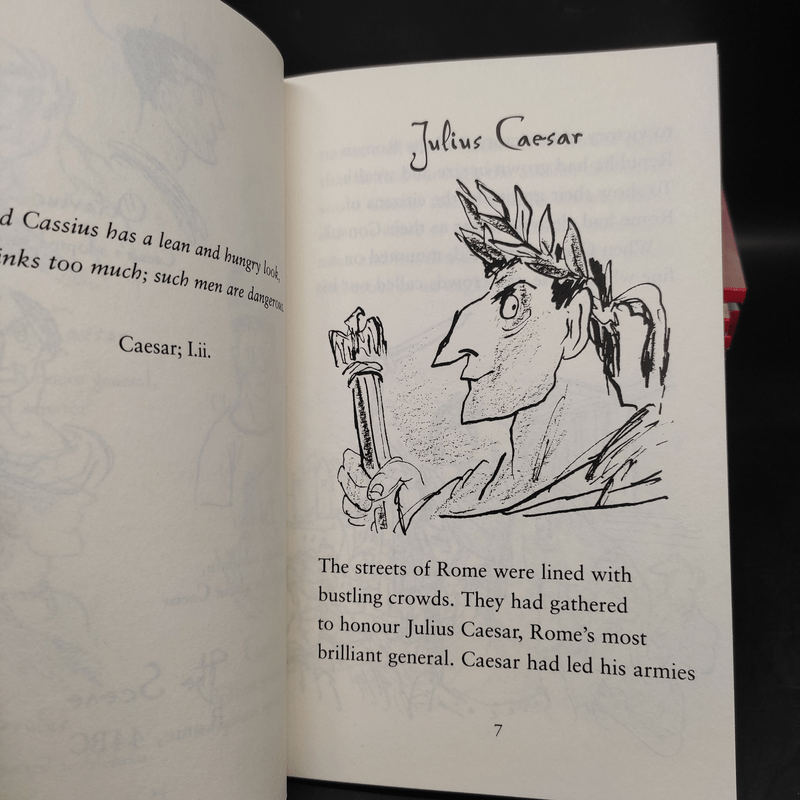 d Cassius has a lean and hungry look,
inks too much; such men are dangerous.
Caesar; I.ii.
Julius Caesar
The streets of Rome were lined with
bustling crowds. They had gathered
to honour Julius Caesar, Rome's most
brilliant general. Caesar had led his armies
7